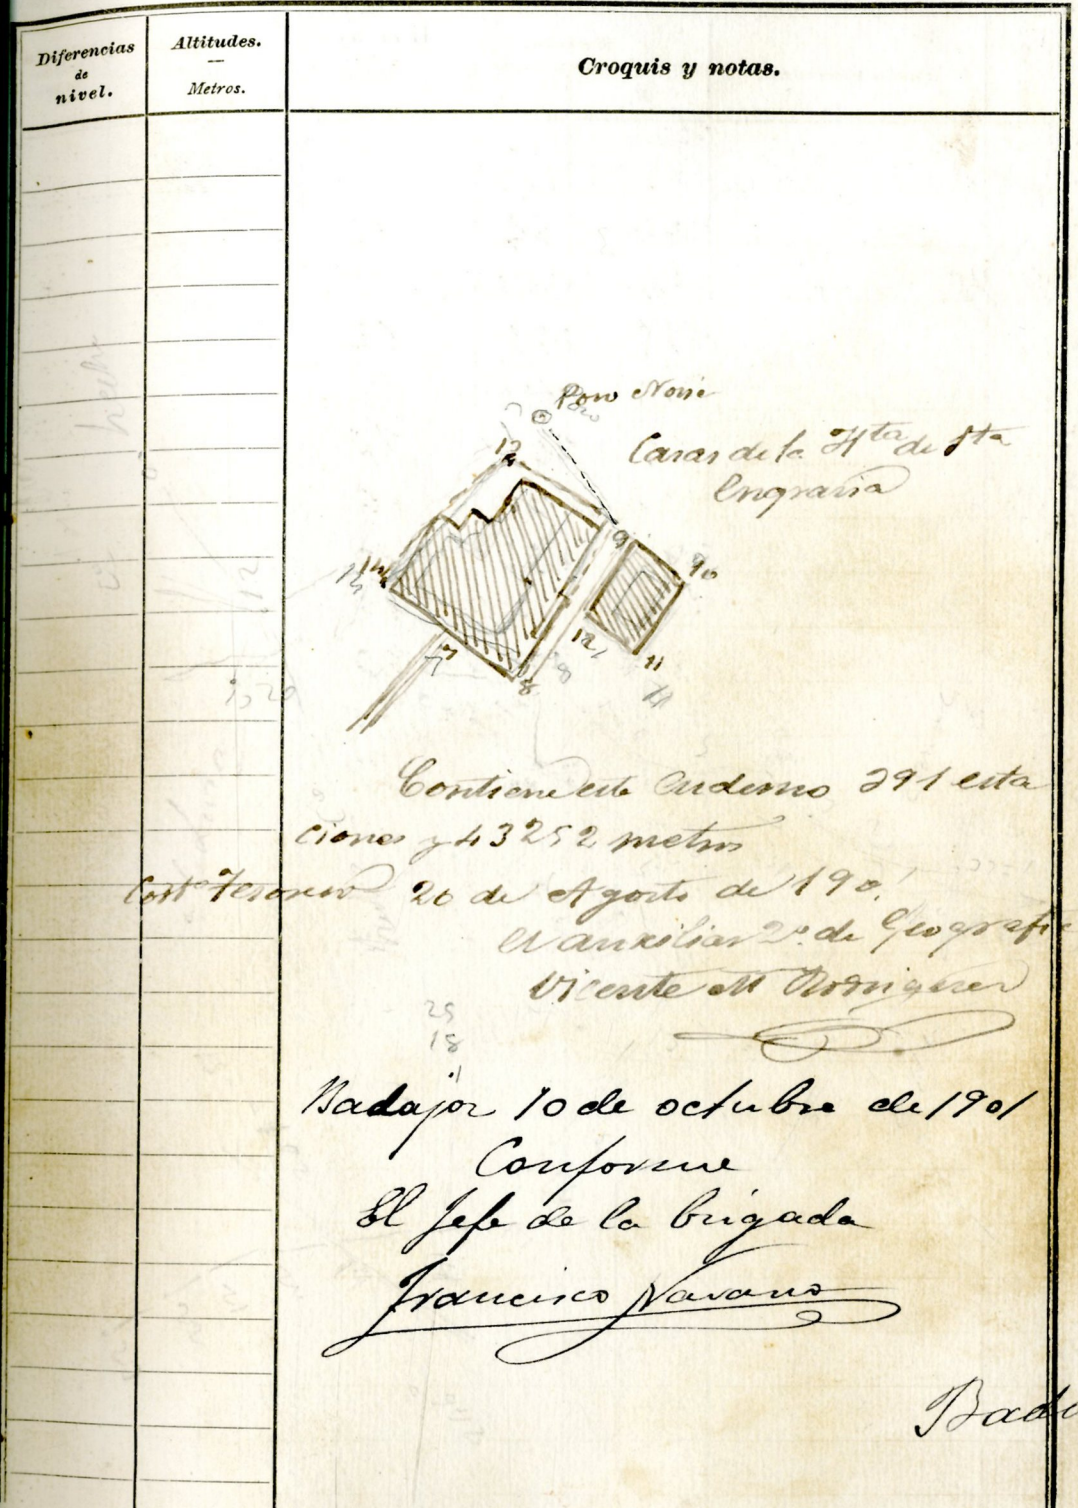 Diferencias
de
nivel.
Altitudes.
Metros.
Croquis y notas.
Pozo Noria
Casas de la Hta de Sta
Engracia
12
9
90
13
7
8
8
12
11
11
Contiene este Cuaderno 291 esta
ciones y 43252 metros
20 de Agosto de 190
El auxiliar 2º de Geografia
Vicente M Rodriguez
25
18
Badajoz 10 de octubre de 1901
Conforme
El Jefe de la brigada
Francisco Navarro
Bad